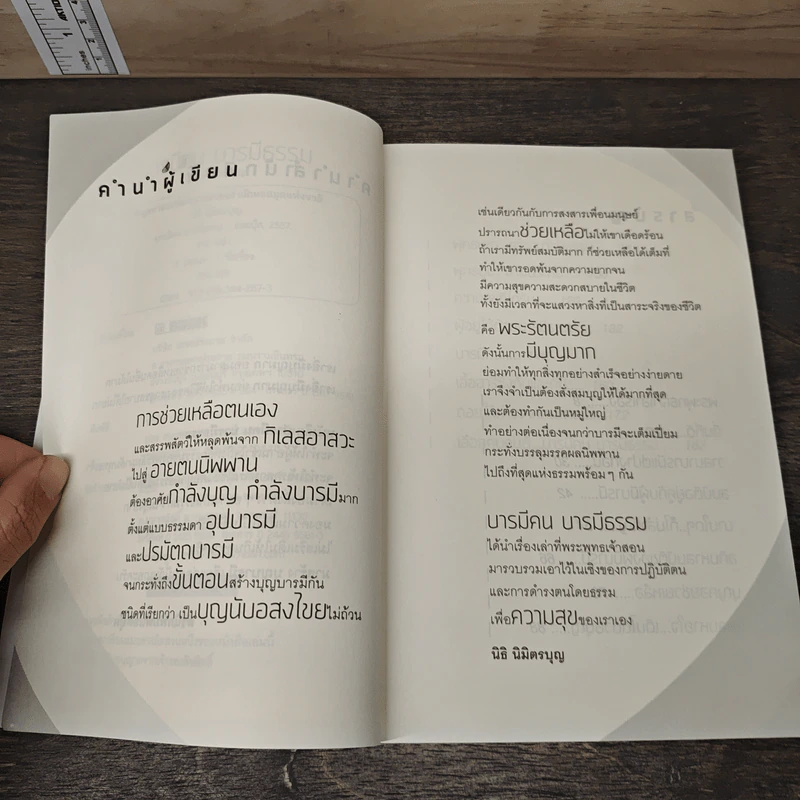 คำนำผู้เขียน
การช่วยเหลือตนเอง
และสรรพสัตว์ให้หลุดพ้นจาก กิเลสอาสวะ
ไปสู่ อายตนนิพพาน
ต้องอาศัยกำลังบุญ กำลังบารมีมาก
ตั้งแต่แบบธรรมดา อุปบารมี
และปรมัตถบารมี
จนกระทั่งถึงขั้นตอนสร้างบุญบารมีกัน
ชนิดที่เรียกว่า เป็นบุญนับอสงไขยไม่ถ้วน
เช่นเดียวกันกับการสงสารเพื่อนมนุษย์
ปรารถนาช่วยเหลือไม่ให้เขาเดือดร้อน
ถ้าเรามีทรัพย์สมบัติมาก ก็ช่วยเหลือได้เต็มที่
ทำให้เขารอดพ้นจากความยากจน
มีความสุขความสะดวกสบายในชีวิต
ทั้งยังมีเวลาที่จะแสวงหาสิ่งที่เป็นสาระจริงของชีวิต
คือ พระรัตนตรัย
ดังนั้นการมีบุญมาก
ย่อมทำให้ทุกสิ่งทุกอย่างสำเร็จอย่างง่ายดาย
เราจึงจำเป็นต้องสั่งสมบุญให้ได้มากที่สุด
และต้องทำกันเป็นหมู่ใหญ่
ทำอย่างต่อเนื่องจนกว่าบารมีจะเต็มเปี่ยม
กระทั่งบรรลุมรรคผลนิพพาน
ไปถึงที่สุดแห่งธรรมพร้อมๆ กัน
บารมีคน บารมีธรรม
ได้นำเรื่องเล่าที่พระพุทธเจ้าสอน
มารวบรวมเอาไว้ในเชิงของการปฏิบัติตน
และการดำรงตนโดยธรรม
เพื่อความสุขของเราเอง
นิธิ นิมิตรบุญ